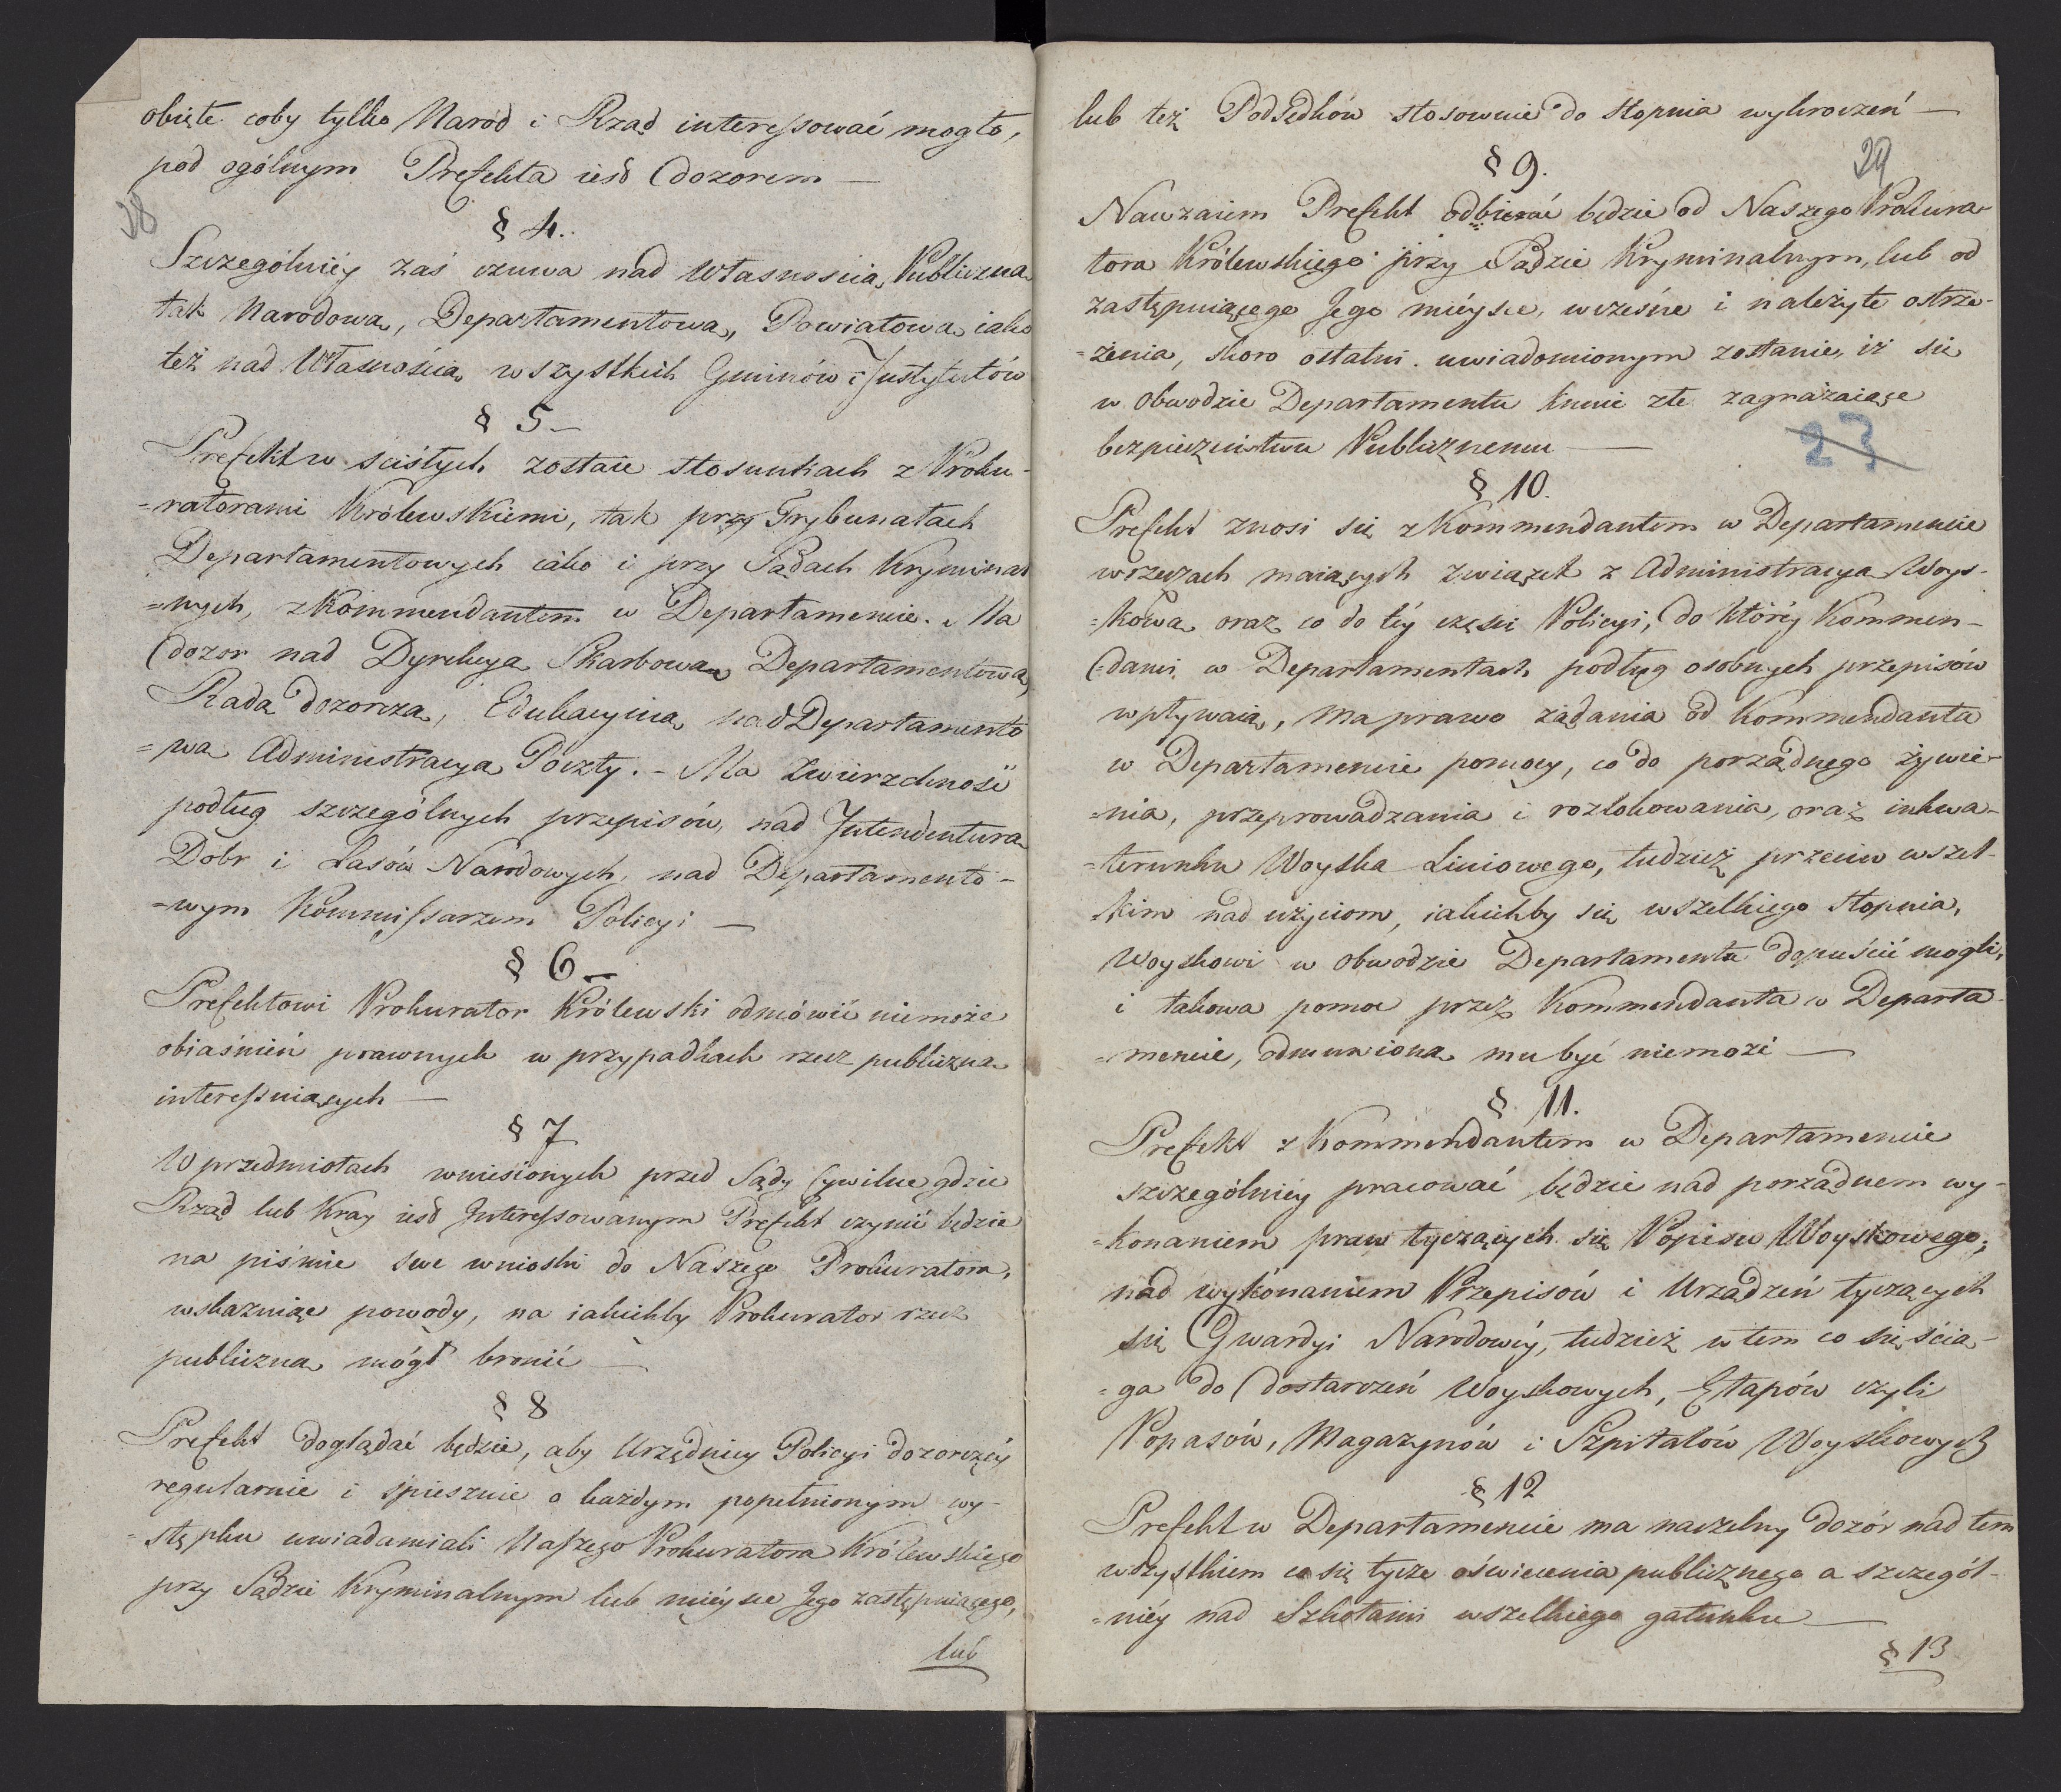 obięte coby tylko Naród i Rząd interessować mogło,
pod ogólnym Prefekta iest dozorem —
38
§ 4.
Szczególniéy zaś czuwa nad własnością Publiczną
tak Narodową, Departamentową, Powiatową iako
też nad Własnością wszystkich Gminów i Instytutów
§ 5 –
Prefekt w ścisłych zostaie stosunkach z Proku-
=ratorami Królewskiemi, tak przy Trybunałach
Departamentowych iako i przy Sądach Kryminal
=nych, z Kommendantem w Departamencie. Ma
dozor nad Dyrekcyą Skarbową Departamentową,
Radą dozorczą, Edukacyiną nad Departamento
=wą Administracyą Poczty. – Ma Zwierzchność
podług szczególnych przepisów, nad Intendenturą
Dobr i Lasów Narodowych, nad Departamento-
=wym Kommissarzem Policyi —
§ 6 –
Prefektowi Prokurator Królewski odmówić niemoże
obiaśnień prawnych w przypadkach rzecz publiczną
interessuiących —
§ 7
W przedmiotach wniesionych przed Sądy Cywilne gdzie
Rząd lub Kray iest Interessowanym Prefekt czynić będzie
na piśmie swe wnioski do Naszego Prokuratora,
wskazuiąc powody, na iakichby Prokurator rzecz
publiczną mógł bronić —
§ 8
Prefekt doglądać będzie, aby Urzędnicy Policyi dozorczéy
regularnie i spiesznie o każdym popełnionym wy-
=stępku uwiadamiali Naszego Prokuratora Królewskiego
przy Sądzie Kryminalnym lub mieysce Jego zastępuiącego,
lub
lub też PodSędków stosownie do stopnia wykroczeń —
§ 9.
29
Nawzaiem Prefekt odbierać będzie od Naszego Prokura-
tora Królewskiego przy Sądzie Kryminalnym, lub od
zastępuiącego Jego miéysce, wczesne i należyte ostrze-
=żenia, skoro ostatni uwiadomionym zostanie, iż się
w obwodzie Departamentu knuie złe zagrażaiące
bezpieczeństwu Publicznemu —
23
§ 10.
Prefekt znosi się z Kommendantem w Departamencie
w rzeczach maiących związek z Administracyą Woys-
=kową oraz co do téy części Policyi, do któréy Kommen-
=danci w Departamentach podług osobnych przepisów
wpływaią, ma prawo żądania od Kommendanta
w Departamencie pomocy, co do porządnego żywie-
=nia, przeprowadzania i rozlokowania, oraz inkwa-
=terunku Woyska Liniowego, tudzież przeciw wszel-
kim nadużyciom, iakichby się wszelkiego stopnia,
Woyskowi w obwodzie Departamentu dopuścić mogli,
i takowa pomoc przez Kommendanta w Departa-
=mencie, odmówiona mu być niemoże —
§ 11.
Prefekt z Kommendantem w Departamencie
szczególniéy pracować będzie nad porządnem wy-
=konaniem praw tyczących się Popisu Woyskowego;
nad wykonaniem Przepisów i Urządzeń tyczących
się Gwardyi Narodowéy, tudzież w tem co się ścią-
=ga do dostarczeń Woyskowych, Etapów czyli
Popasów, Magazynów i Szpitalów Woyskowych
§ 12
Prefekt w Departamencie ma naczelny dozór nad tem
wszystkiem co się tycze oświecenia publicznego a szczegól-
=niéy nad Szkołami wszelkiego gatunku —
§ 13